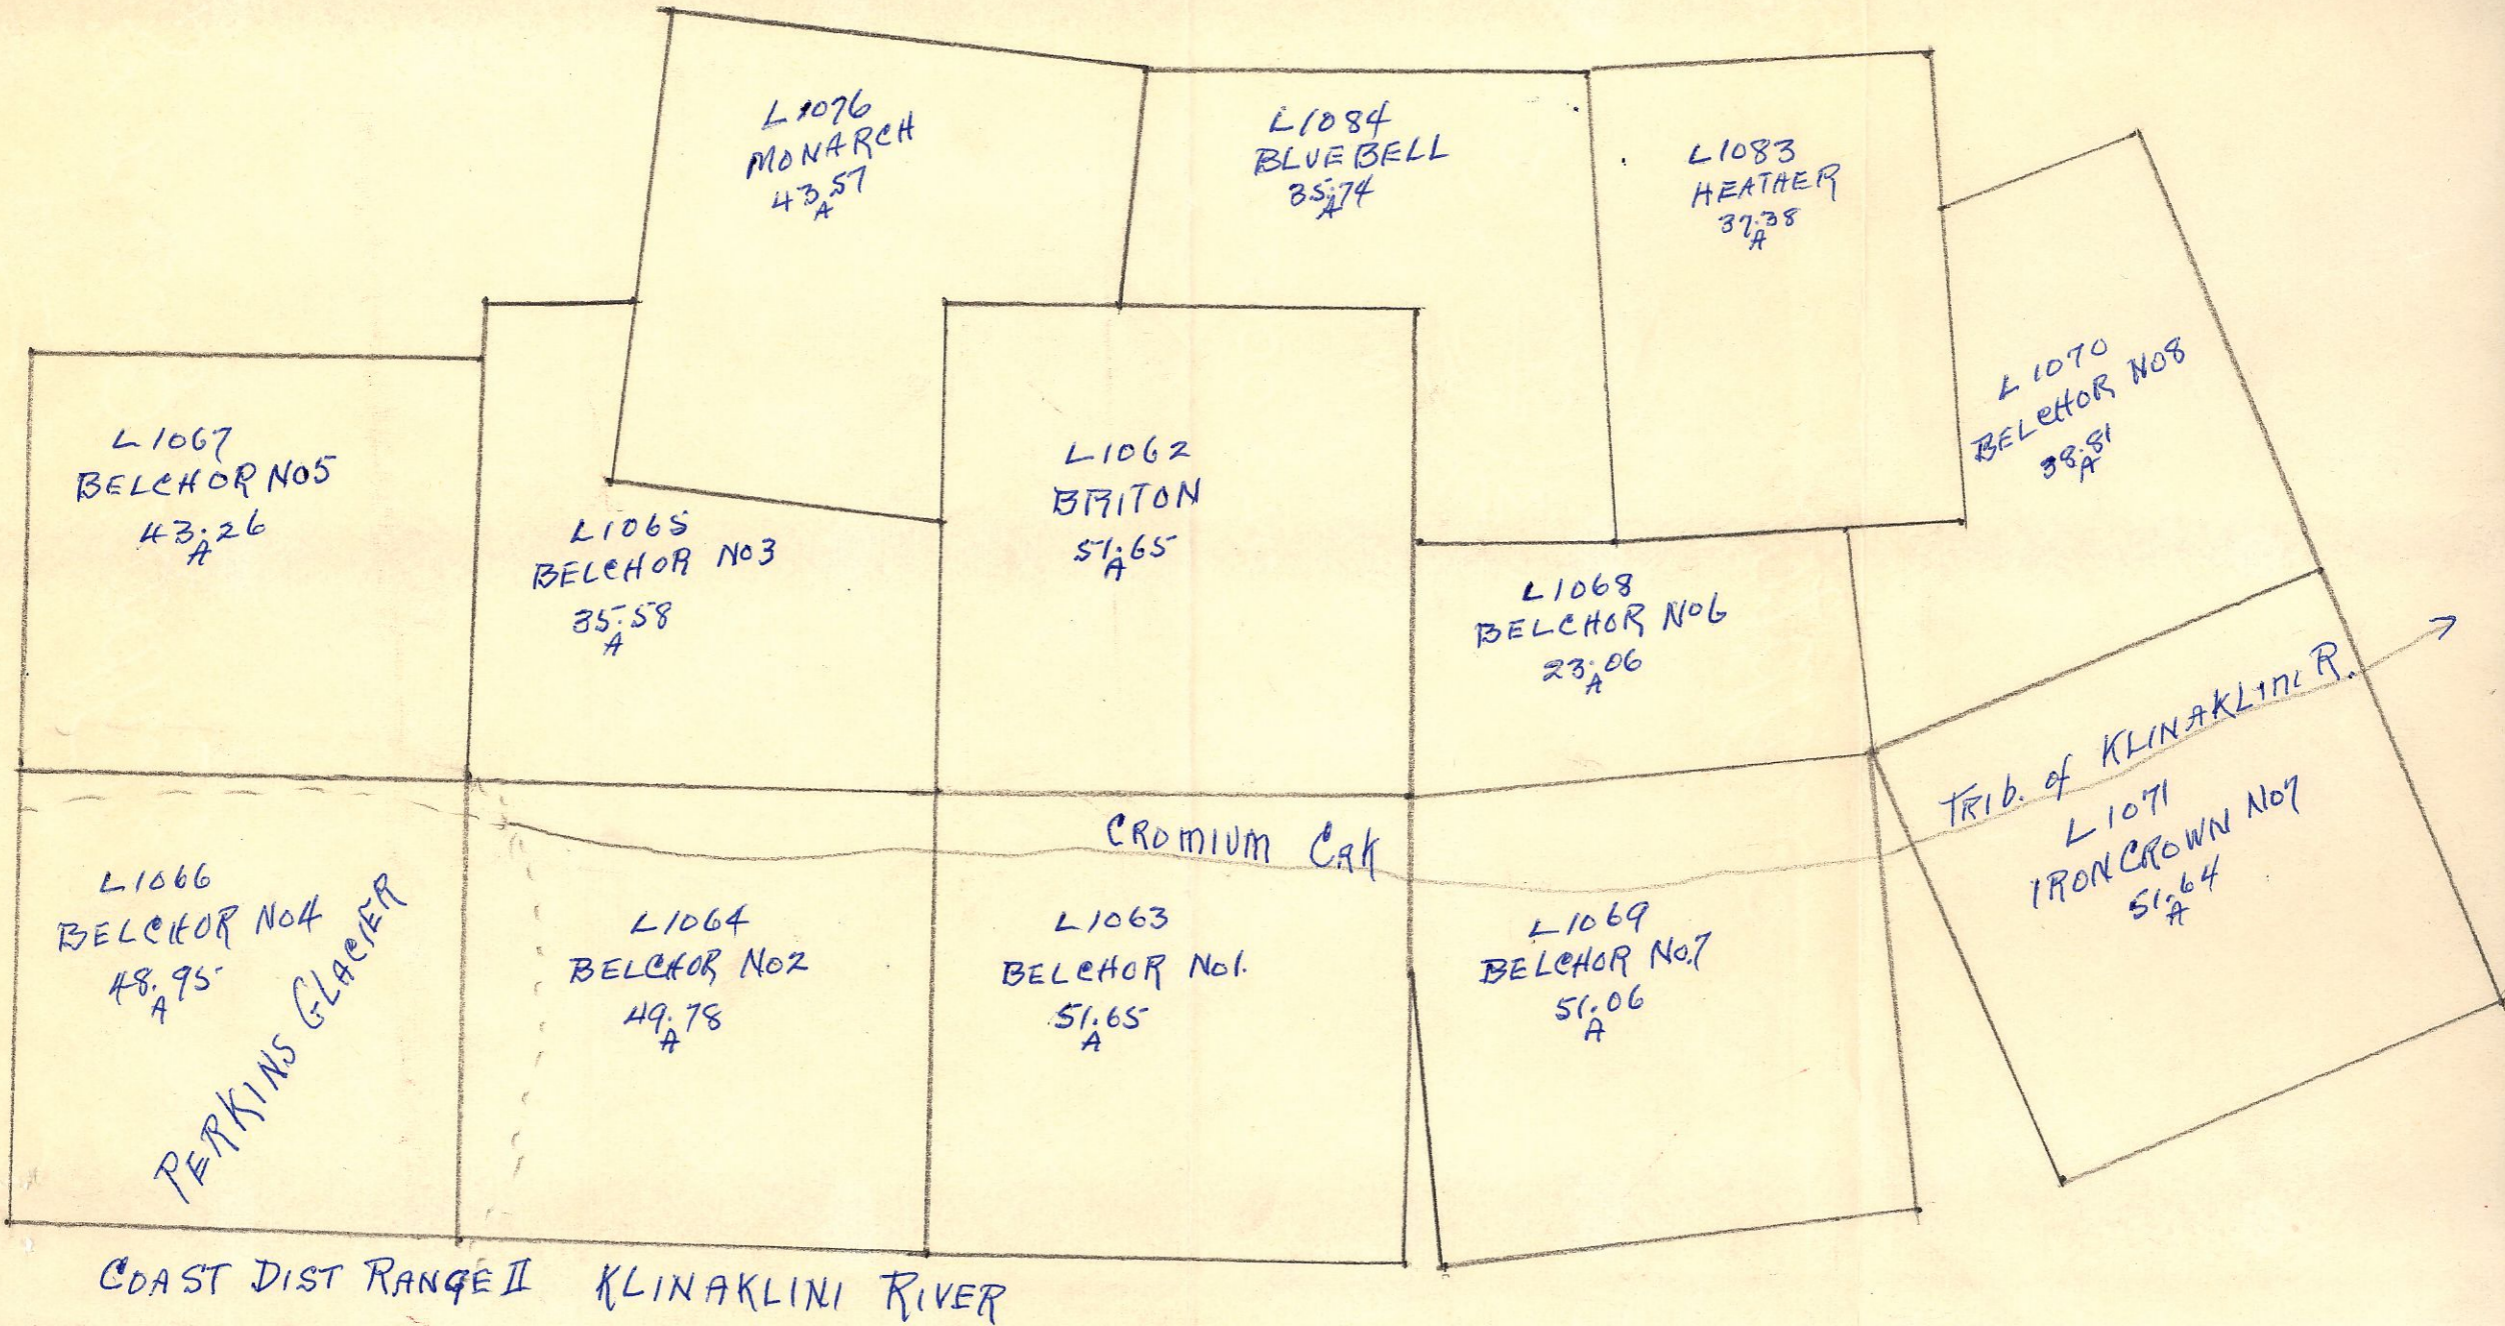 L1076
MONARCH
43.57
A
L1084
BLUEBELL
35.74
A
L1083
HEATHER
37.38
A
L1070
BELCHOR No8
38.81
A
L1067
BELCHOR No5
43.26
A
L1065
BELCHOR No3
35.58
A
L1062
BRITON
51.65
A
L1068
BELCHOR No6
23.06
A
TRIb. of KLINAKLINI R.
L1071
IRON CROWN No7
51.64
A
CROMIUM CRK
L1066
BELCHOR No4
48.95
A
PERKINS GLACIER
L1064
BELCHOR No2
49.78
A
L1063
BELCHOR No1.
51.65
A
L1069
BELCHOR No.7
51.06
A
COAST DIST RANGE II KLINAKLINI RIVER